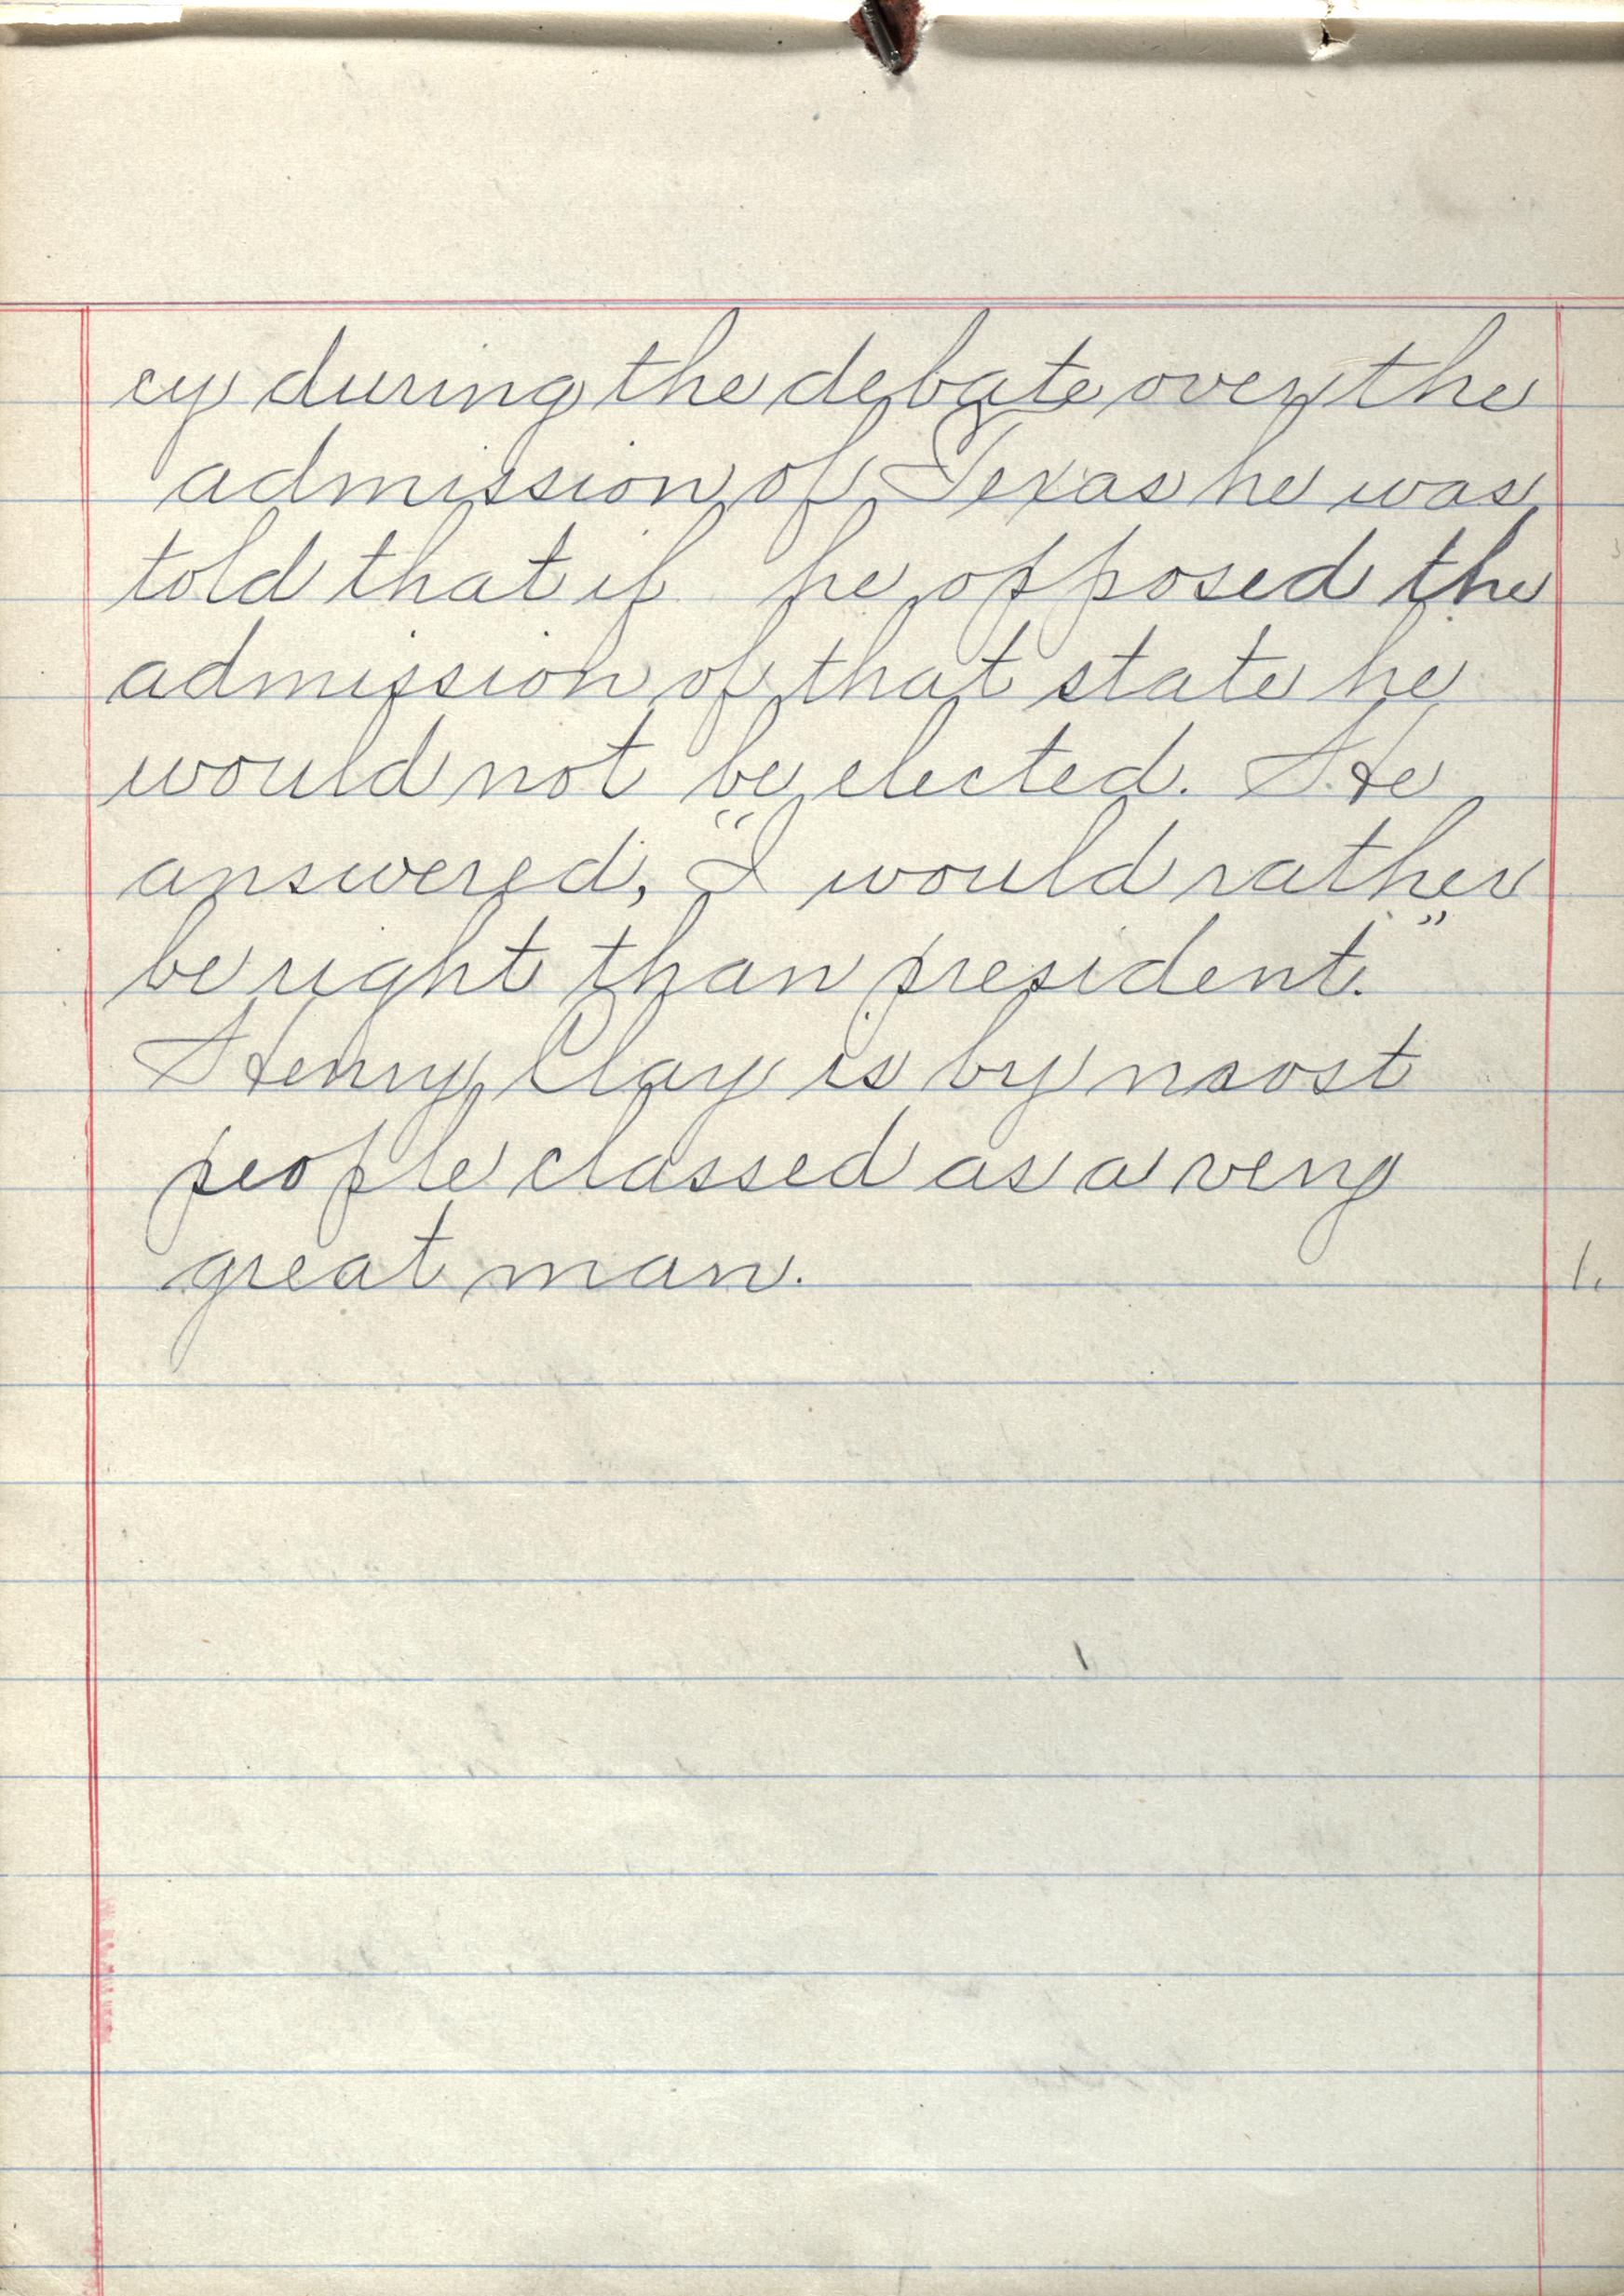 cy during the debate over the
admission of Texas he was
told that if he opposed the
admission of that state he
would not be elected. He
answered, "I would rather
be right than president."
Henry Clay is by most
people classed as a very
great man.